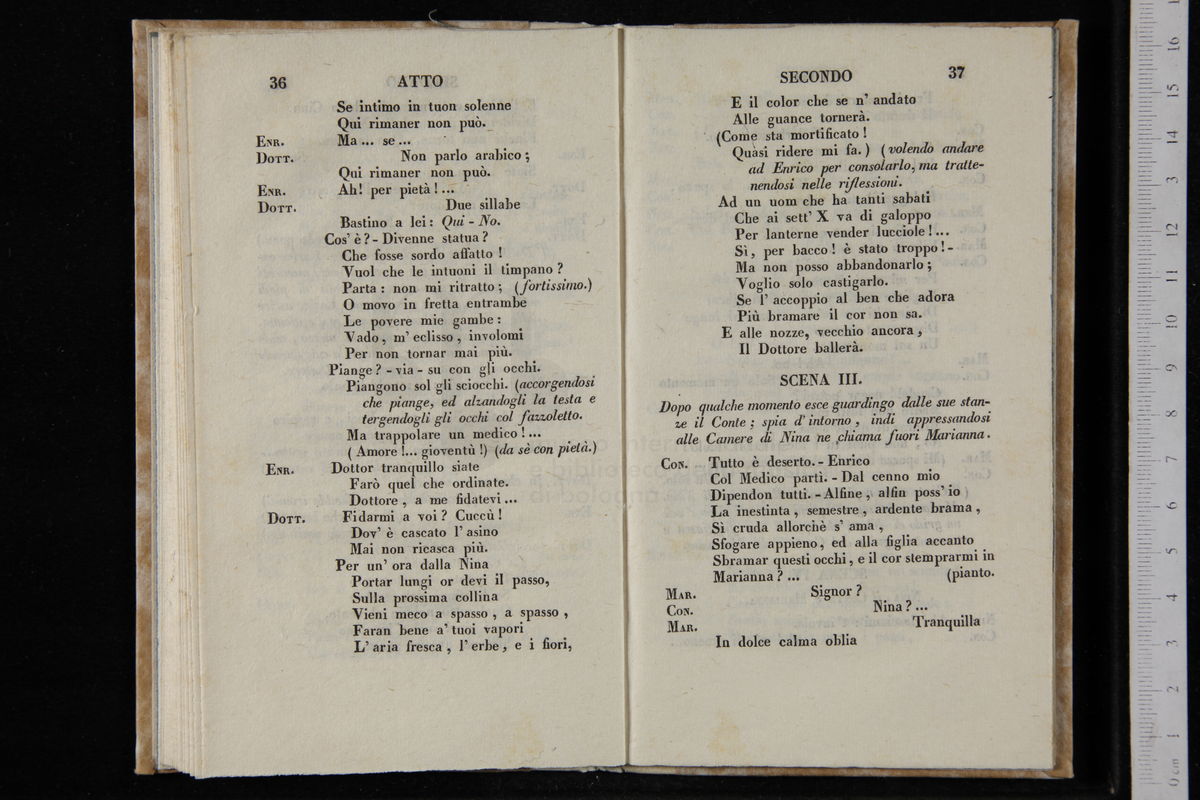 36 ATTO
Se intimo in tuon solenne
Qui rimaner non può.
ENR. Ma ... se ...
DOTT. Non parlo arabico ;
Qui rimaner non può.
ENR. Ah! per pietà ! ...
DOTT. Due sillabe
Bastino a lei : Qui - No.
Cos' è ? - Divenne statua ?
Che fosse sordo affatto !
Vuol che le intuoni il timpano ?
Parta : non mi ritratto ; (fortissimo.)
O movo in fretta entrambe
Le povere mie gambe :
Vado, m' eclisso, involomi
Per non tornar mai più.
Piange ? - via - su con gli occhi.
Piangono sol gli sciocchi. (accorgendosi
che piange, ed alzandogli la testa e
tergendogli gli occhi col fazzoletto.
Ma trappolare un medico ! ...
( Amore !... gioventù !) (da sè con pietà.)
ENR. Dottor tranquillo siate
Farò quel che ordinate.
Dottore , a me fidatevi ...
DOTT. Fidarmi a voi ? Cuccù !
Dov' è cascato l' asino
Mai non ricasca più.
Per un' ora dalla Nina
Portar lungi or devi il passo,
Sulla prossima collina
Vieni meco a spasso , a spasso ,
Faran bene a' tuoi vapori
L' aria fresca , l' erbe , e i fiori,
SECONDO 37
E il color che se n' andato
Alle guance tornerà.
(Come sta mortificato !
Quàsi ridere mi fa. ) (volendo andare
ad Enrico per consolarlo, ma tratte-
nendosi nelle riflessioni.
Ad un uom che ha tanti sabati
Che ai sett' X va di galoppo
Per lanterne vender lucciole ! ...
Sì, per bacco ! è stato troppo ! -
Ma non posso abbandonarlo ;
Voglio solo castigarlo.
Se l' accoppio al ben che adora
Più bramare il cor non sa.
E alle nozze, vecchio ancora ,
Il Dottore ballerà.
SCENA III.
Dopo qualche momento esce guardingo dalle sue stan-
ze il Conte ; spia d' intorno , indi appressandosi
alle Camere di Nina ne chiama fuori Marianna .
CON. Tutto è deserto. - Enrico
Col Medico partì. - Dal cenno mio
Dipendon tutti. - Alfine , alfin poss' io
La inestinta , semestre , ardente brama ,
Sì cruda allorchè s' ama ,
Sfogare appieno, ed alla figlia accanto
Sbramar questi occhi , e il cor stemprarmi in
Marianna ? ... (pianto.
MAR. Signor ?
CON. Nina ? ...
MAR. Tranquilla
In dolce calma oblia